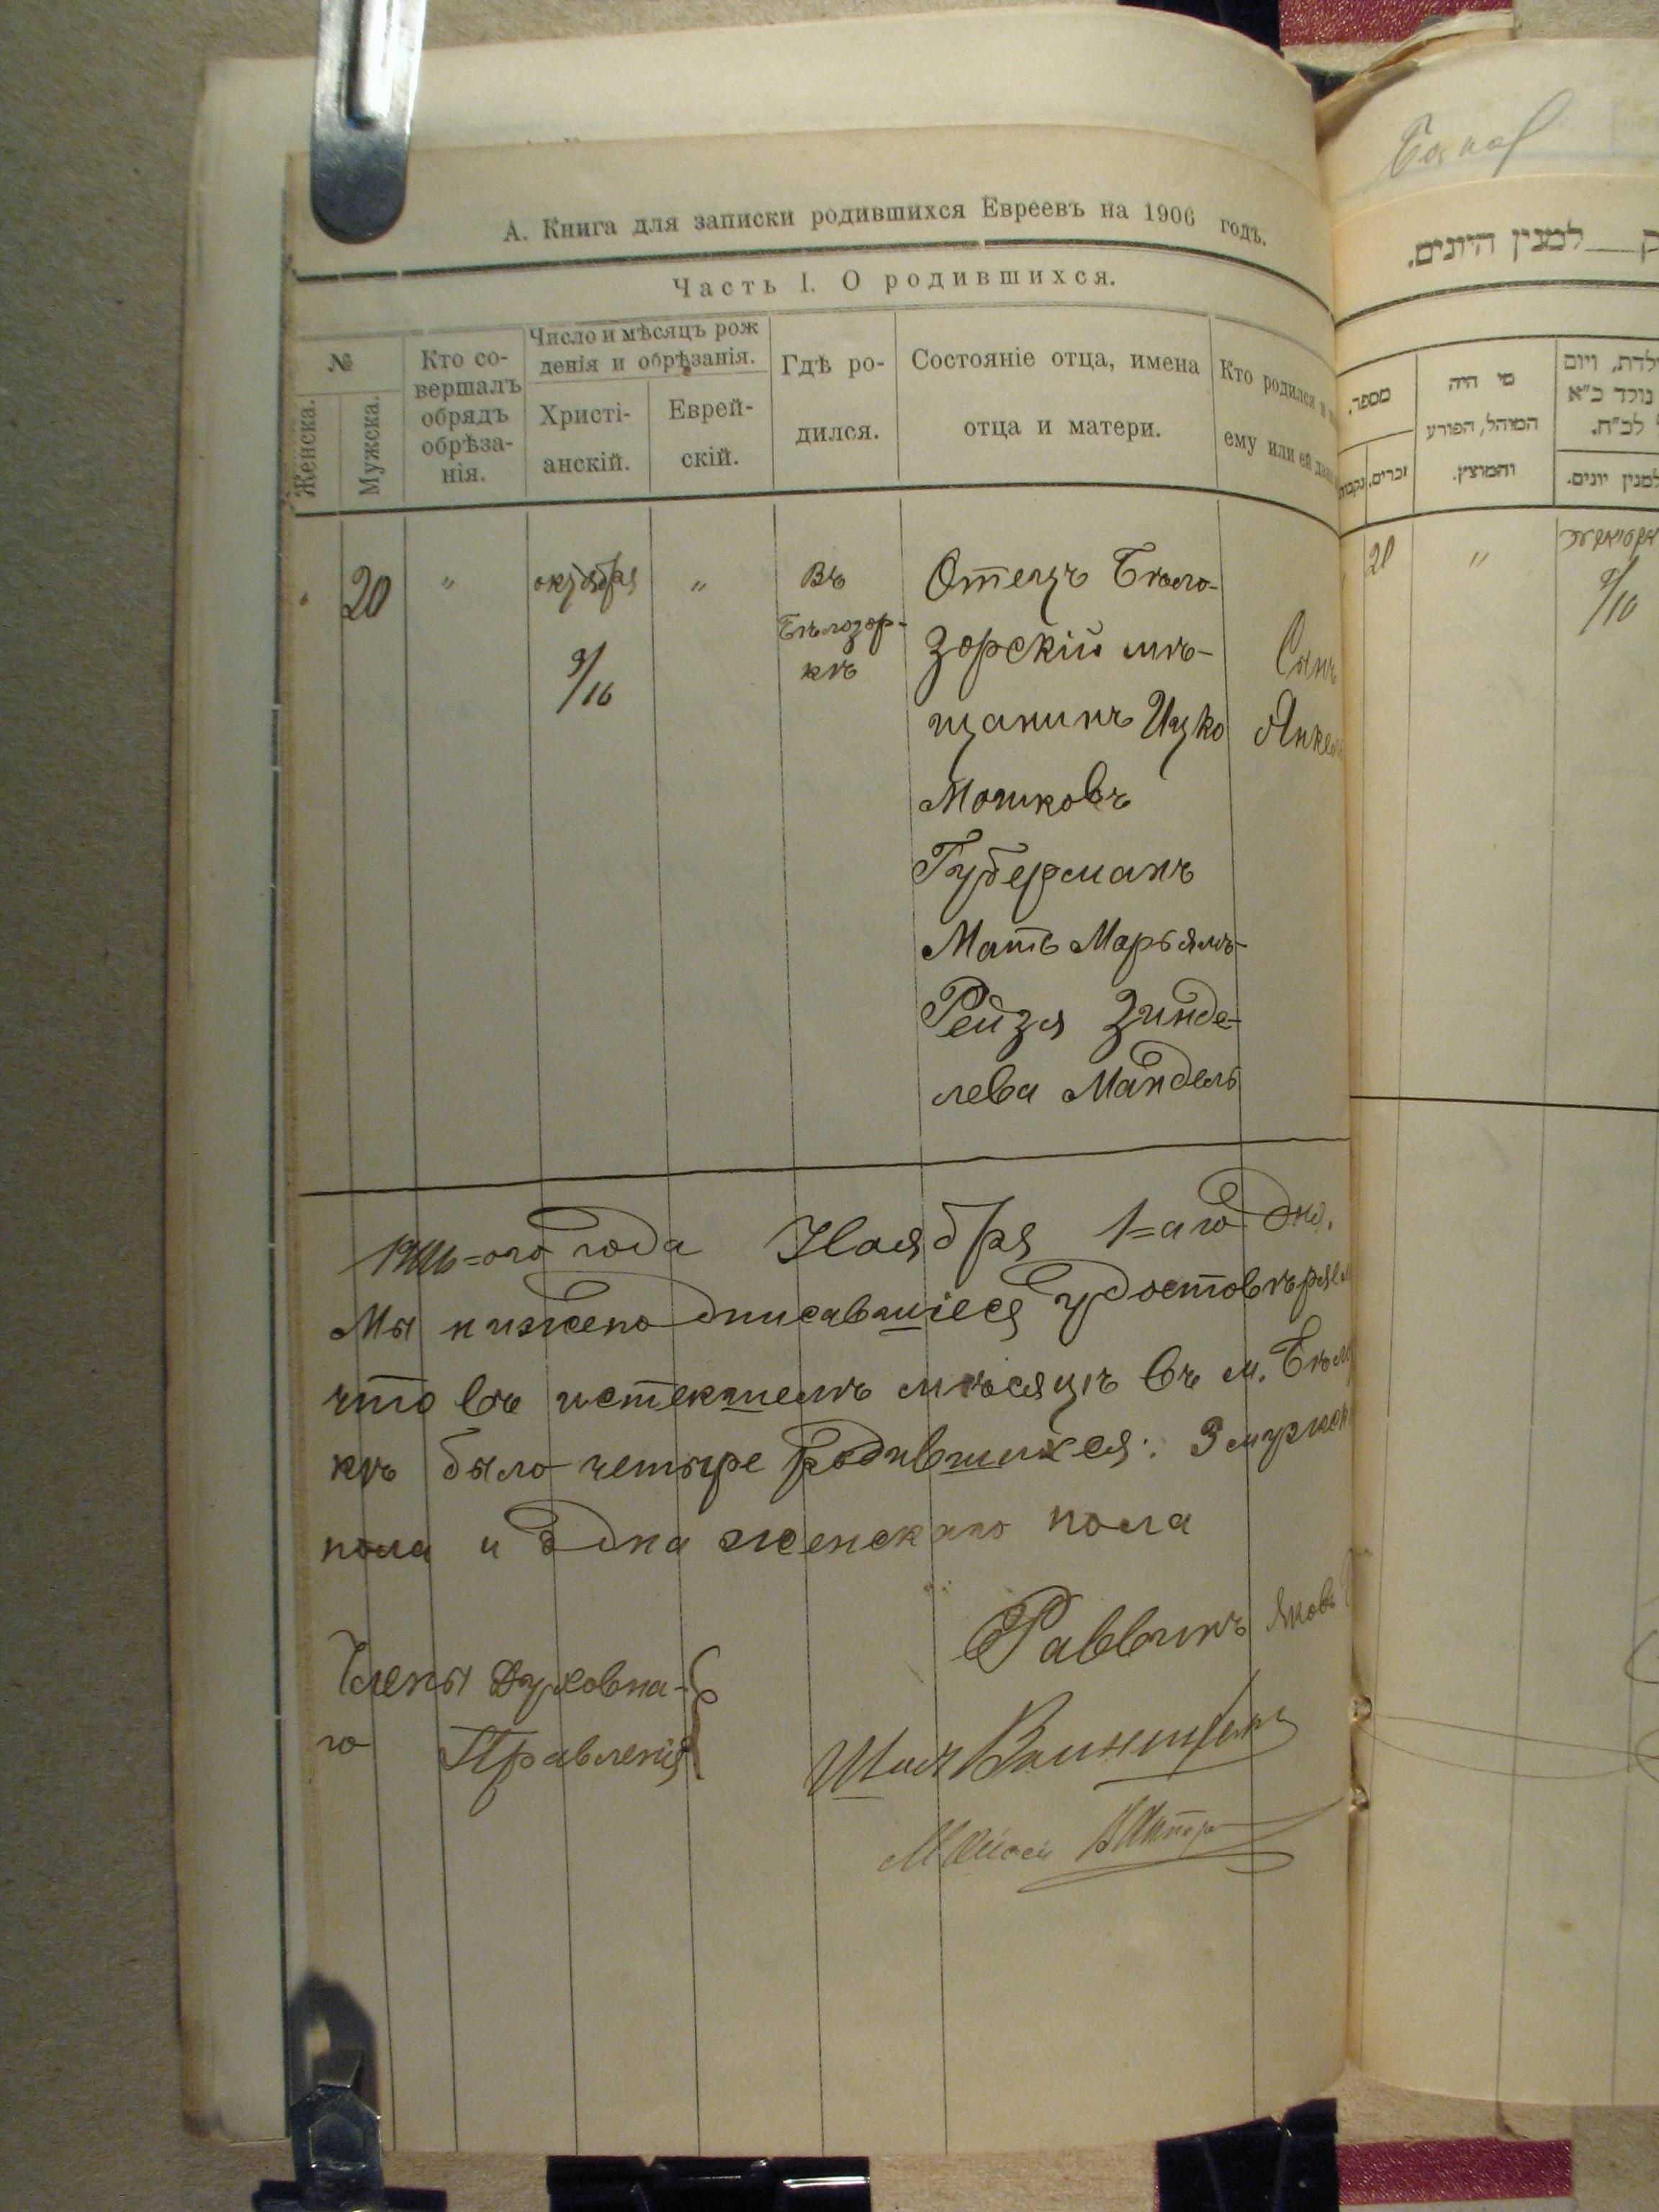 А. Книга для записки родившихся Евреевъ на 1906 годъ.
Часть I. О родившихся.
№
Женска.
Мужска.
Кто со-
вершалъ
обрядъ
обрѣза-
нія.
Число и мѣсяцъ рож
денія и обрѣзанія.
Христі-
анскій.
Еврей-
скій.
Гдѣ ро-
дился.
Состояніе отца, имена
отца и матери.
Кто родился и
ему или ей
20
"
октября
9/16
"
Въ
Бѣлозор-
кѣ
Отецъ Бѣло-
зорскій мѣ-
щанинъ Ицко
Мошковъ
Губерманъ
Мать Марьямъ-
Рейзя Зинде-
лева Мандель
Сынъ
Янкель
1906=ого года Ноября 1=аго дня.
Мы нижеподписавшіеся удостовѣряем
что въ истекшемъ мѣсяцѣ въ м. Бѣло
кѣ было четыре родившихся: 3 мужск
пола и одна женскаго пола
Раввинъ Яковъ
Члены Духовна-
го Правленія
למנין היונים.
מספר.
זכרים.
מי היה
המוהל, הפורע
והמוצץ.
לדת, ויום
נולד כ"א
לכ"ח.
למנין יונים.
20
"
9/16